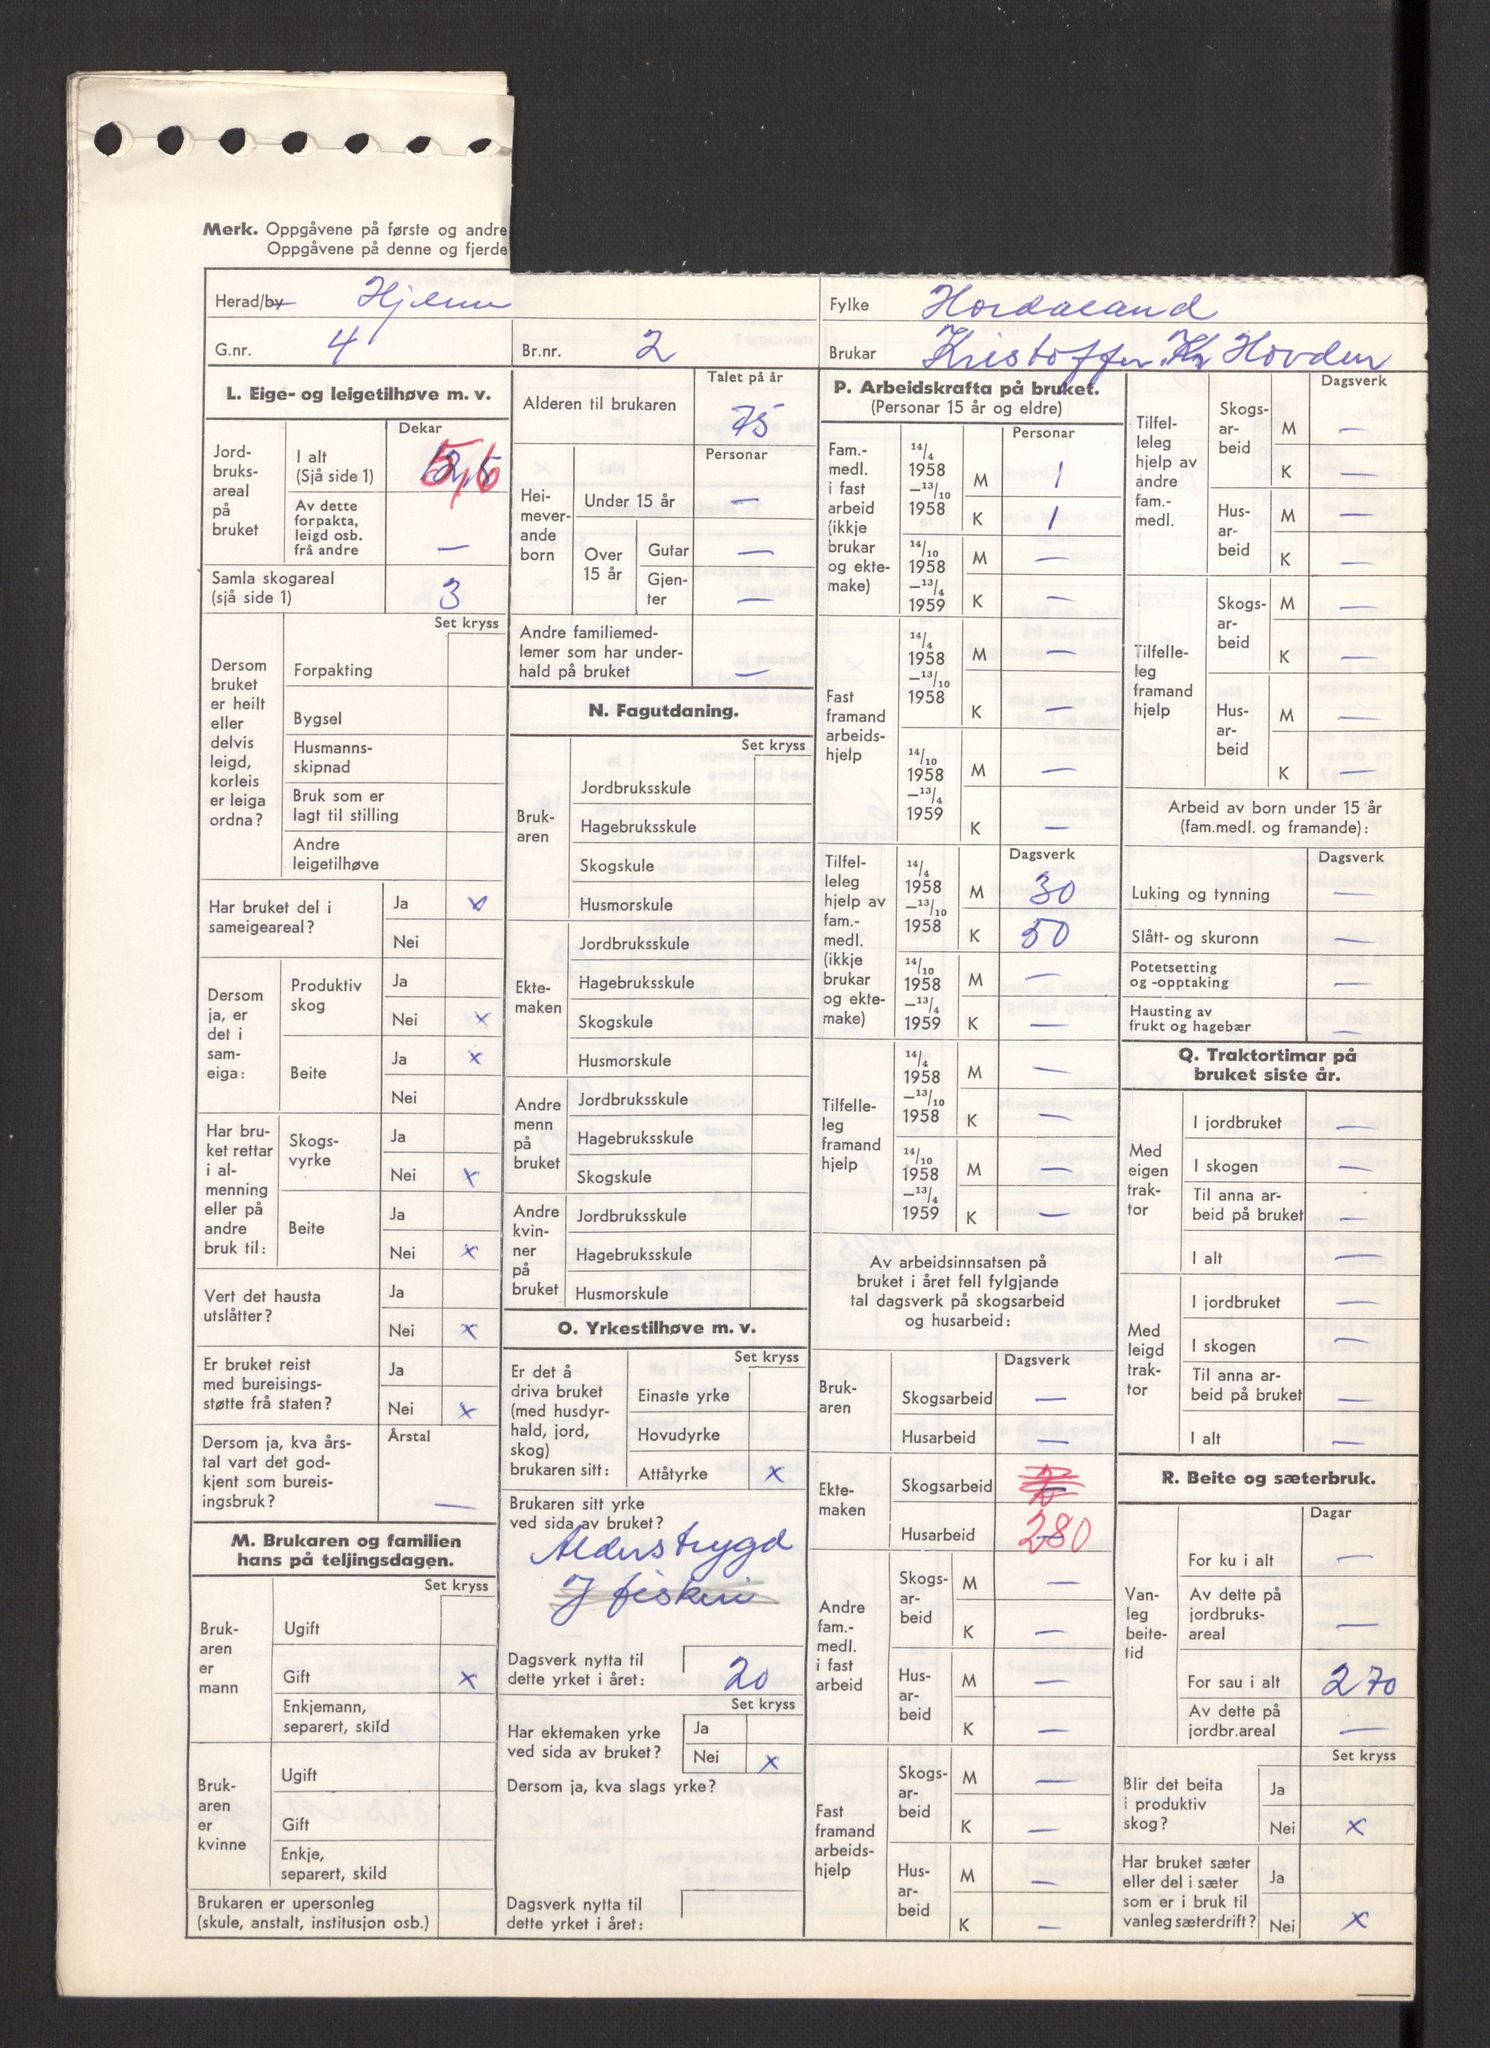 Merk. Oppgåvene på første og andre
Oppgåvene på denne og fjerde
Herad/by Hjelme
Fylke Hordaland
G.nr. 4
Br.nr. 2
Brukar Kristoffer Kr Hovden
L. Eige- og leigetilhøve m. v.
Dekar
Jord-
bruks-
areal
på
bruket
I alt
(Sjå side 1)
5,6
Av dette
forpakta,
leigd osb.
frå andre —
Samla skogareal
(sjå side 1) 3
Set kryss
Dersom
bruket
er heilt
eller
delvis
leigd,
korleis
er leiga
ordna?
Forpakting
Bygsel
Husmanns-
skipnad
Bruk som er
lagt til stilling
Andre
leigetilhøve
Har bruket del i
sameigeareal?
Ja x
Nei
Dersom
ja, er
det i
sam-
eiga:
Produktiv
skog
Ja
Nei x
Beite
Ja x
Nei
Har bru-
ket rettar
i al-
menning
eller på
andre
bruk til:
Skogs-
vyrke
Ja
Nei x
Beite
Ja
Nei x
Vert det hausta
utslåtter?
Ja
Nei x
Er bruket reist
med bureisings-
støtte frå staten?
Ja
Nei x
Dersom ja, kva års-
tal vart det god-
kjent som bureis-
ingsbruk?
Årstal
—
M. Brukaren og familien
hans på teljingsdagen.
Set kryss
Bruk-
aren
er
mann
Ugift
Gift x
Enkjemann,
separert, skild
Bruk-
aren
er
kvinne
Ugift
Gift
Enkje,
separert, skild
Brukaren er upersonleg
(skule, anstalt, institusjon osb.)
Talet på år
Alderen til brukaren 75
Personar
Hei-
mever-
ande
born
Under 15 år —
Over
15 år
Gutar —
Gjen-
ter —
Andre familiemed-
lemer som har under-
hald på bruket —
N. Fagutdaning.
Set kryss
Bruk-
aren
Jordbruksskule
Hagebruksskule
Skogskule
Husmorskule
Ekte-
maken
Jordbruksskule
Hagebruksskule
Skogskule
Husmorskule
Andre
menn
på
bruket
Jordbruksskule
Hagebruksskule
Skogskule
Andre
kvin-
ner
på
bruket
Jordbruksskule
Hagebruksskule
Husmorskule
O. Yrkestilhøve m. v.
Set kryss
Er det å
driva bruket
(med husdyr-
hald, jord,
skog)
brukaren sitt:
Einaste yrke
Hovudyrke
Attåtyrke x
Brukaren sitt yrke
ved sida av bruket?
Alderstrygd
I fiskeri
Dagsverk nytta til
dette yrket i året: 20
Set kryss
Har ektemaken yrke
ved sida av bruket?
Ja
Nei x
Dersom ja, kva slags yrke?
Dagsverk nytta til
dette yrket i året:
P. Arbeidskrafta på bruket.
(Personar 15 år og eldre)
Personar
Fam.-
medl.
i fast
arbeid
(ikkje
brukar
og ekte-
make)
14/4
1958
—13/10
1958
M 1
K 1
14/10
1958
—13/4
1959
M —
K —
Fast
framand
arbeids-
hjelp
14/4
1958
—13/10
1958
M —
K —
14/10
1958
—13/4
1959
M —
K —
Dagsverk
Tilfel-
leleg
hjelp av
fam.-
medl.
(ikkje
brukar
og ekte-
make)
14/4
1958
—13/10
1958
M 30
K 50
14/10
1958
—13/4
1959
M —
K —
Tilfelle-
leg
framand
hjelp
14/4
1958
—13/10
1958
M —
K —
14/10
1958
—13/4
1959
M —
K —
Av arbeidsinnsatsen på
bruket i året fell fylgjande
tal dagsverk på skogsarbeid
og husarbeid:
Dagsverk
Bruk-
aren
Skogsarbeid —
Husarbeid —
Ekte-
maken
Skogsarbeid —
Husarbeid 280
Andre
fam.-
medl.
i fast
arbeid
Skogs-
ar-
beid
M —
K —
Hus-
ar-
beid
M —
K —
Fast
framand
arbeids-
hjelp
Skogs-
ar-
beid
M —
K —
Hus-
ar-
beid
M —
K —
Dagsverk
Tilfel-
leleg
hjelp av
andre
fam.-
medl.
Skogs-
ar-
beid
M —
K —
Hus-
ar-
beid
M —
K —
Tilfelle-
leg
framand
hjelp
Skogs-
ar-
beid
M —
K —
Hus-
ar-
beid
M —
K —
Arbeid av born under 15 år
(fam.medl. og framande):
Dagsverk
Luking og tynning —
Slått- og skuronn —
Potetsetting
og -opptaking —
Hausting av
frukt og hagebær —
Q. Traktortimar på
bruket siste år.
Med
eigen
trak-
tor
I jordbruket —
I skogen —
Til anna ar-
beid på bruket —
I alt —
Med
leigd
trak-
tor
I jordbruket —
I skogen —
Til anna ar-
beid på bruket —
I alt —
R. Beite og sæterbruk.
Dagar
Van-
leg
beite-
tid
For ku i alt —
Av dette på
jordbruks-
areal —
For sau i alt 270
Av dette på
jordbr.areal —
Set kryss
Blir det beita
i produktiv
skog?
Ja
Nei x
Har bruket sæter
eller del i sæter
som er i bruk til
vanleg sæterdrift?
Ja
Nei x